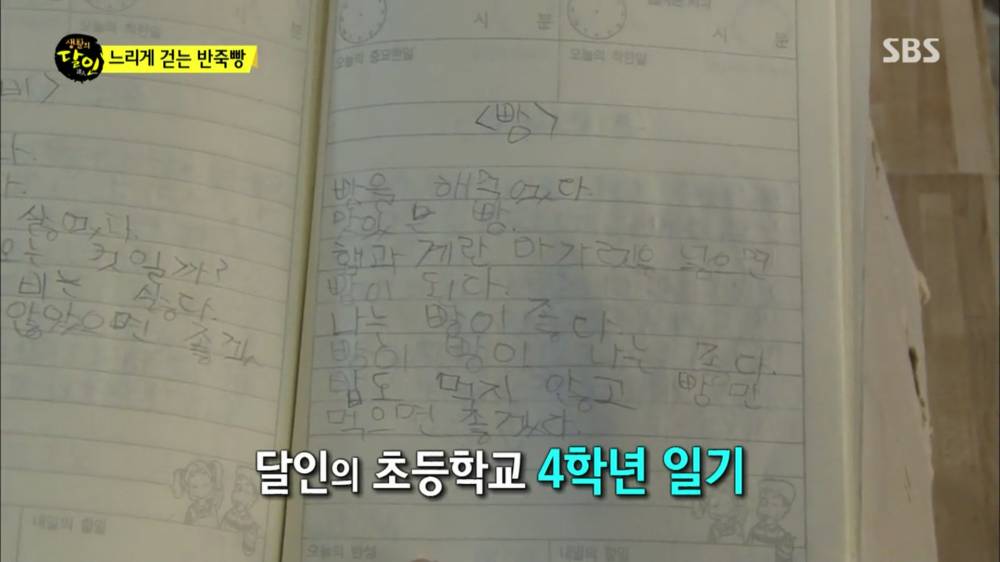 생활의
달인
느리게 걷는 반죽빵
SBS
시 분
시 분
오늘의 착한일
오늘의 중요한일
오늘의 착한일
비>
다.
다.
싫었다.
오는 것일까?
비는 싫다.
않았으면
<빵>
빵을
맛있는 빵.
햄과 계란 넣으면
빵이 되다.
나는 빵이 좋다.
빵이 나는 조다.
밥도 먹지 안고 빵만
먹으면 좋겠다.
달인의 초등학교 4학년 일기
내일의 할일
오늘의 반성
내일의 할일